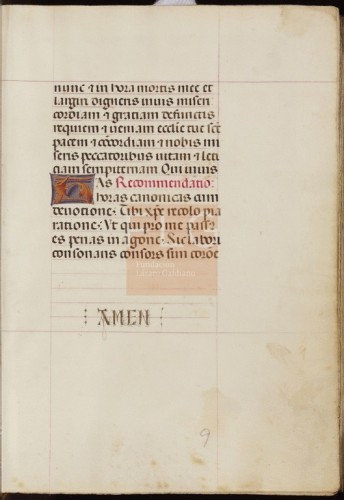 nunc ⁊ in hora mortis mee et
largiri digneris viuis miseri
cordiam ⁊ gratiam defunctis
requiem ⁊ veniam ecclie tue scē
pacem ⁊ cōcordiam ⁊ nobis mi
seris peccatoribus vitam ⁊ leti
ciam sempiternam Qui viuis
HAs Recommendatio:
horas canonicas cum
deuotione: Tibi xpe recolo pia
ratione: Vt qui pro me passꝰ
es penas in agone: Sic labori
consonans consors sim corōe
AMEN
Fundación
Lázaro Galdiano
9